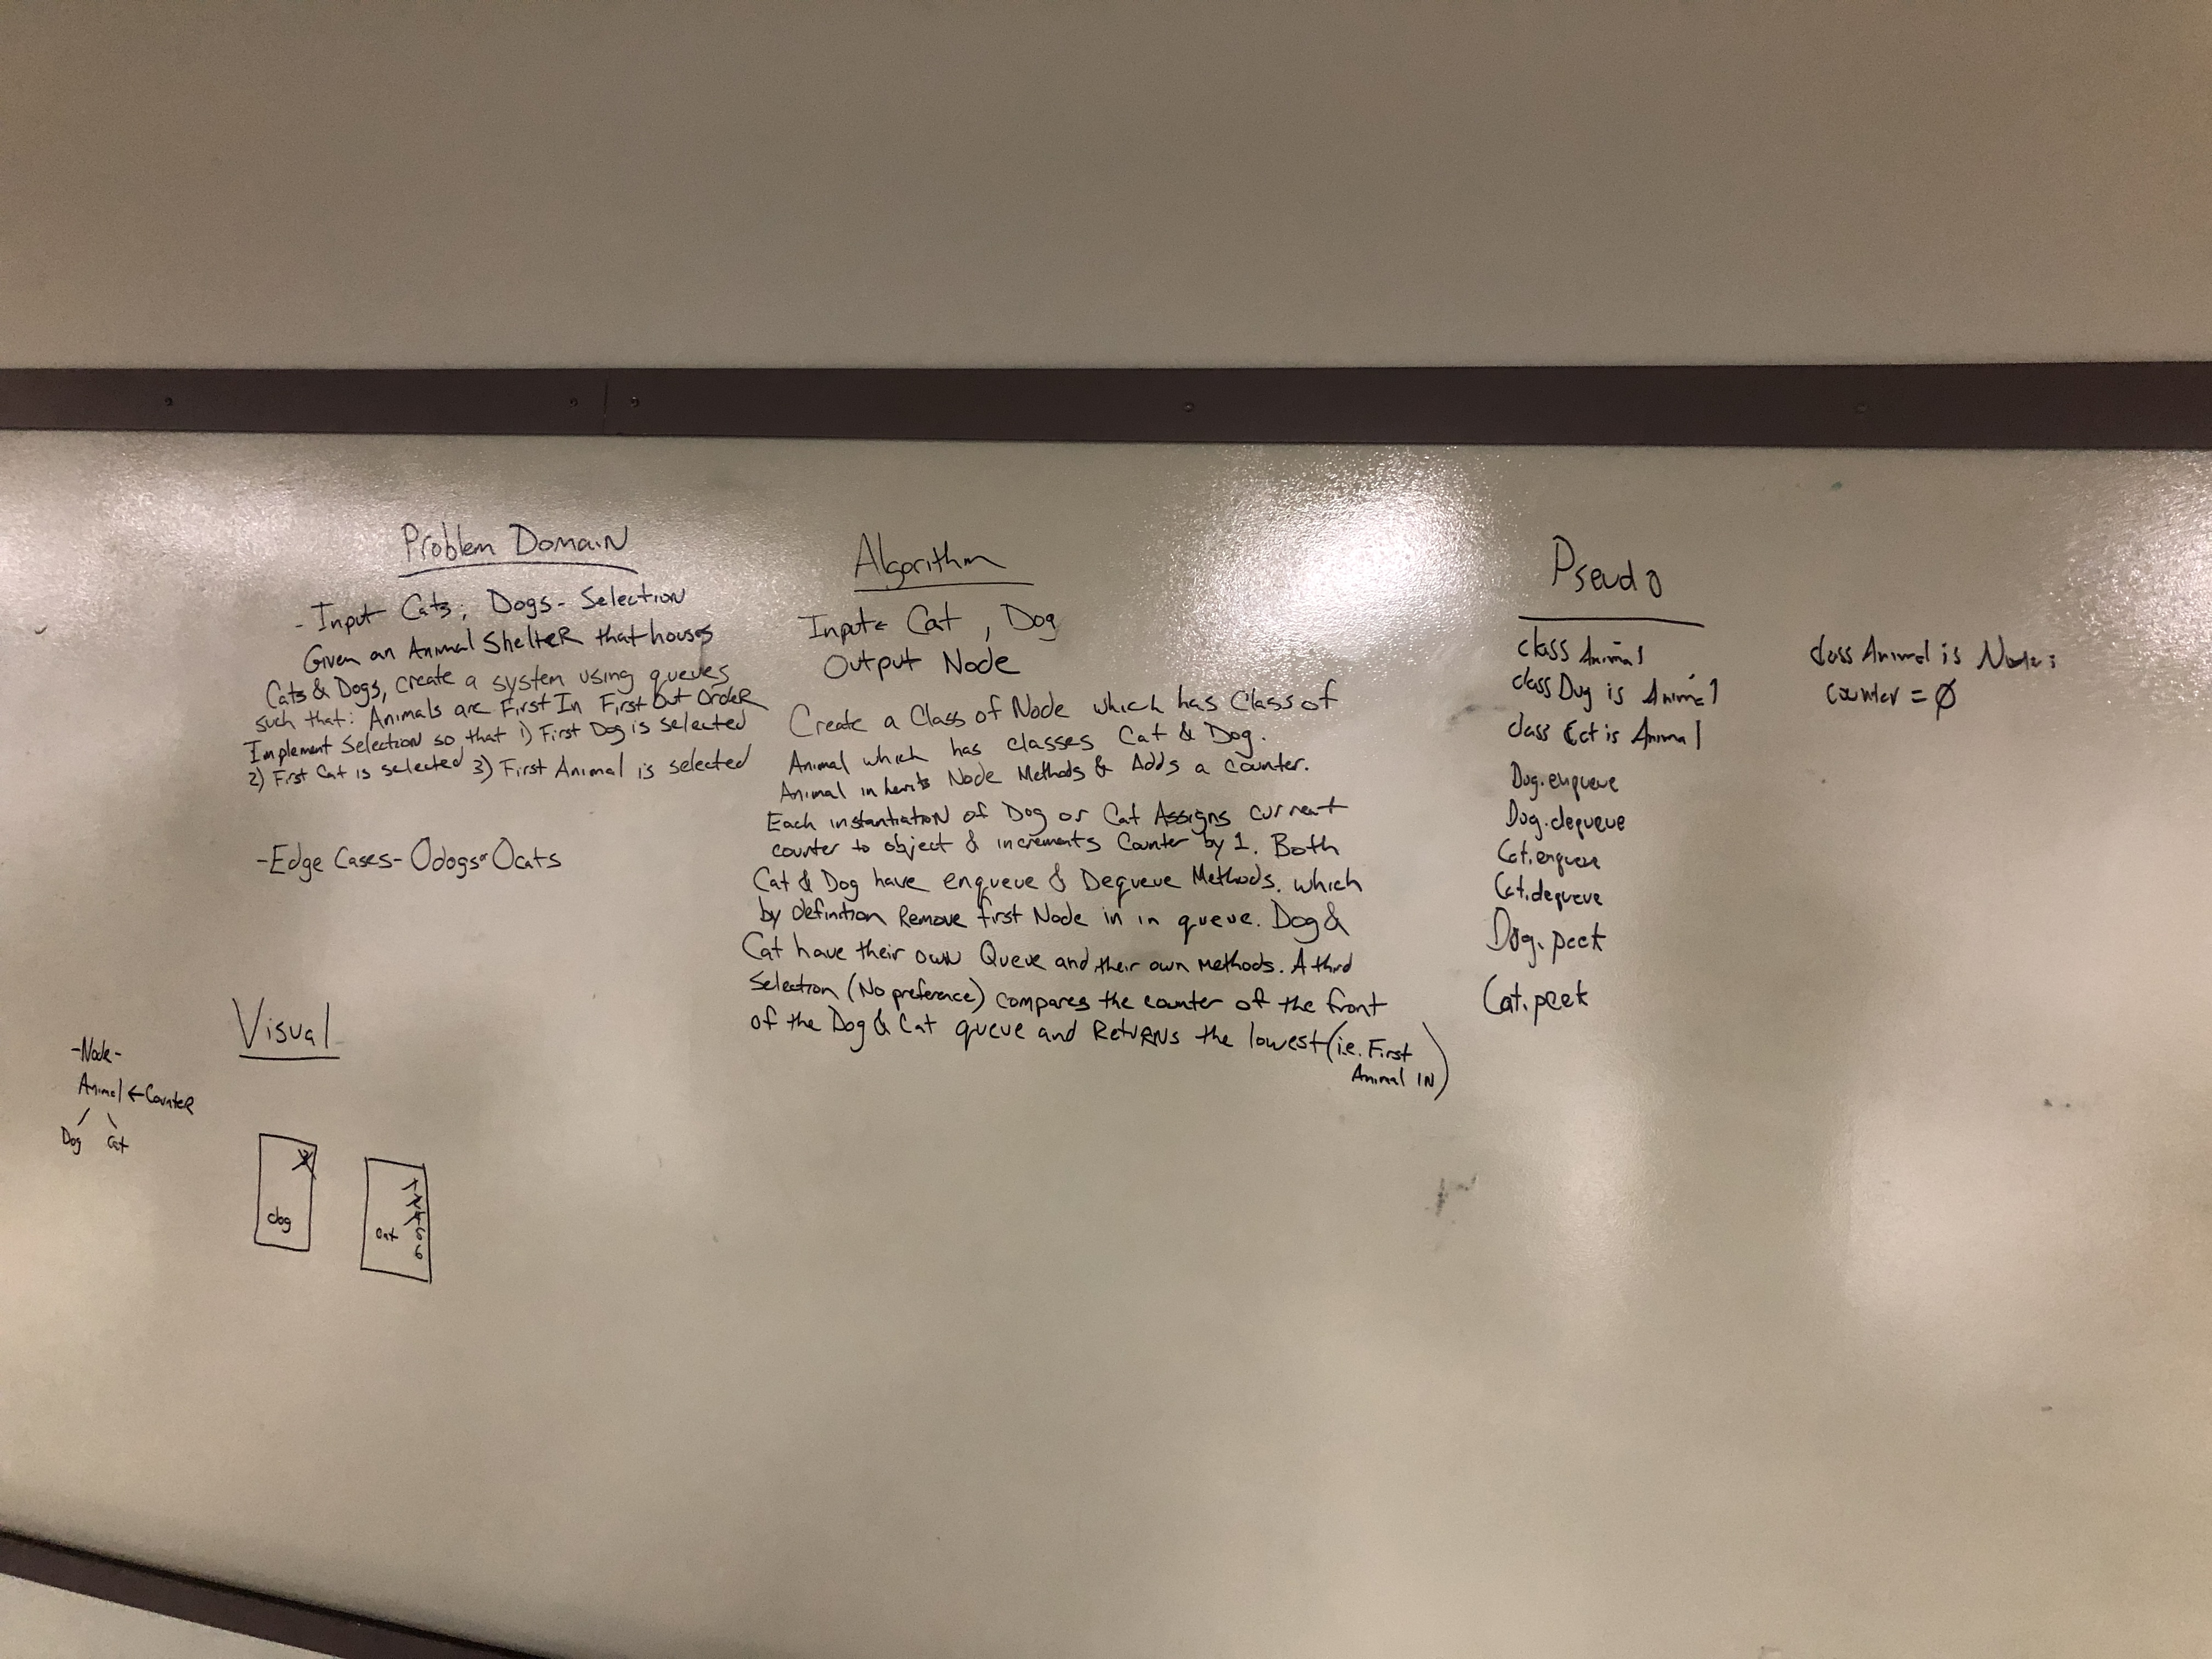 Problem Domain
- Input Cats, Dogs - Selection
Given an Animal Shelter that houses
Cats & Dogs, create a system using queues
such that: Animals are First In First Out Order
Implement Selection so that 1) First Dog is selected
2) First Cat is selected 3) First Animal is selected
-Edge Cases- 0dogs or 0cats
Visual
-Node-
Animal ← Counter
Dog Cat
dog
cat
Algorithm
Input← Cat, Dog
Output Node
Create a Class of Node which has Class of
Animal which has classes Cat & Dog.
Animal inherits Node Methods & Adds a counter.
Each instantiation of Dog or Cat Assigns current
counter to object & increments Counter by 1. Both
Cat & Dog have enqueue & Dequeue Methods. which
by definition Remove first Node in in queue. Dog &
Cat have their own Queue and their own methods. A third
Selection (No preference) compares the counter of the front
of the Dog & Cat queue and Returns the lowest (i.e. First
Animal IN)
Pseudo
class Animal
class Dog is Animal
class Cat is Animal
Dog.enqueue
Dog.dequeue
Cat.enqueue
Cat.dequeue
Dog.peek
Cat.peek
class Animal is Node:
counter = Ø